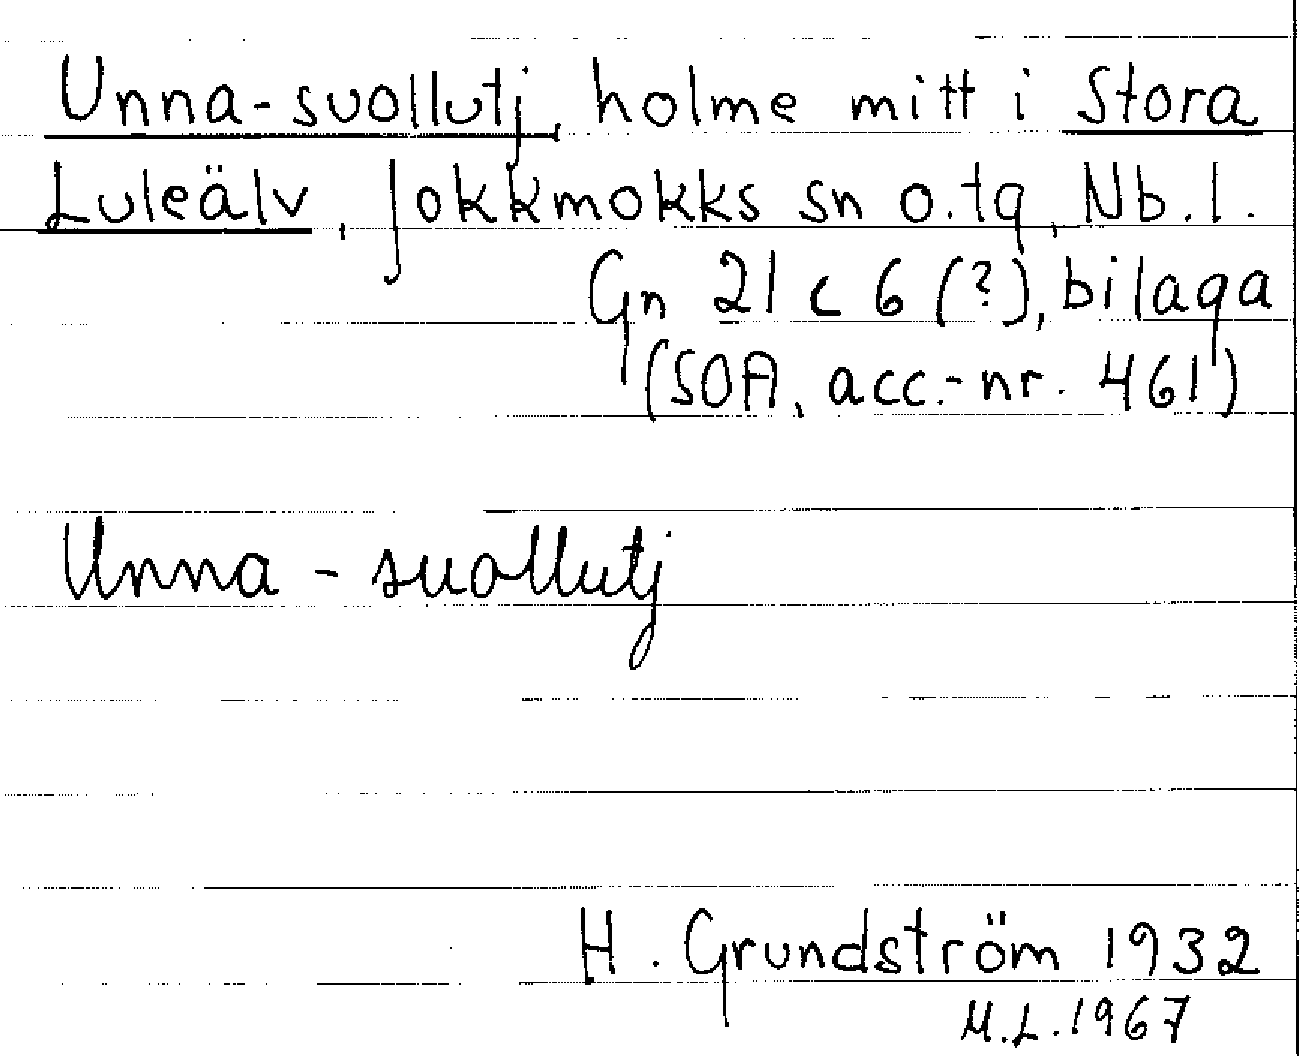 Unna-suollutj, holme mitt i Stora
Luleälv, Jokkmokks sn o. tg, Nb. l.
Gn 21 c 6 (?), bilaga
(SOA, acc.-nr. 461)
Unna-suollutj
H. Grundström 1932
M.L. 1967